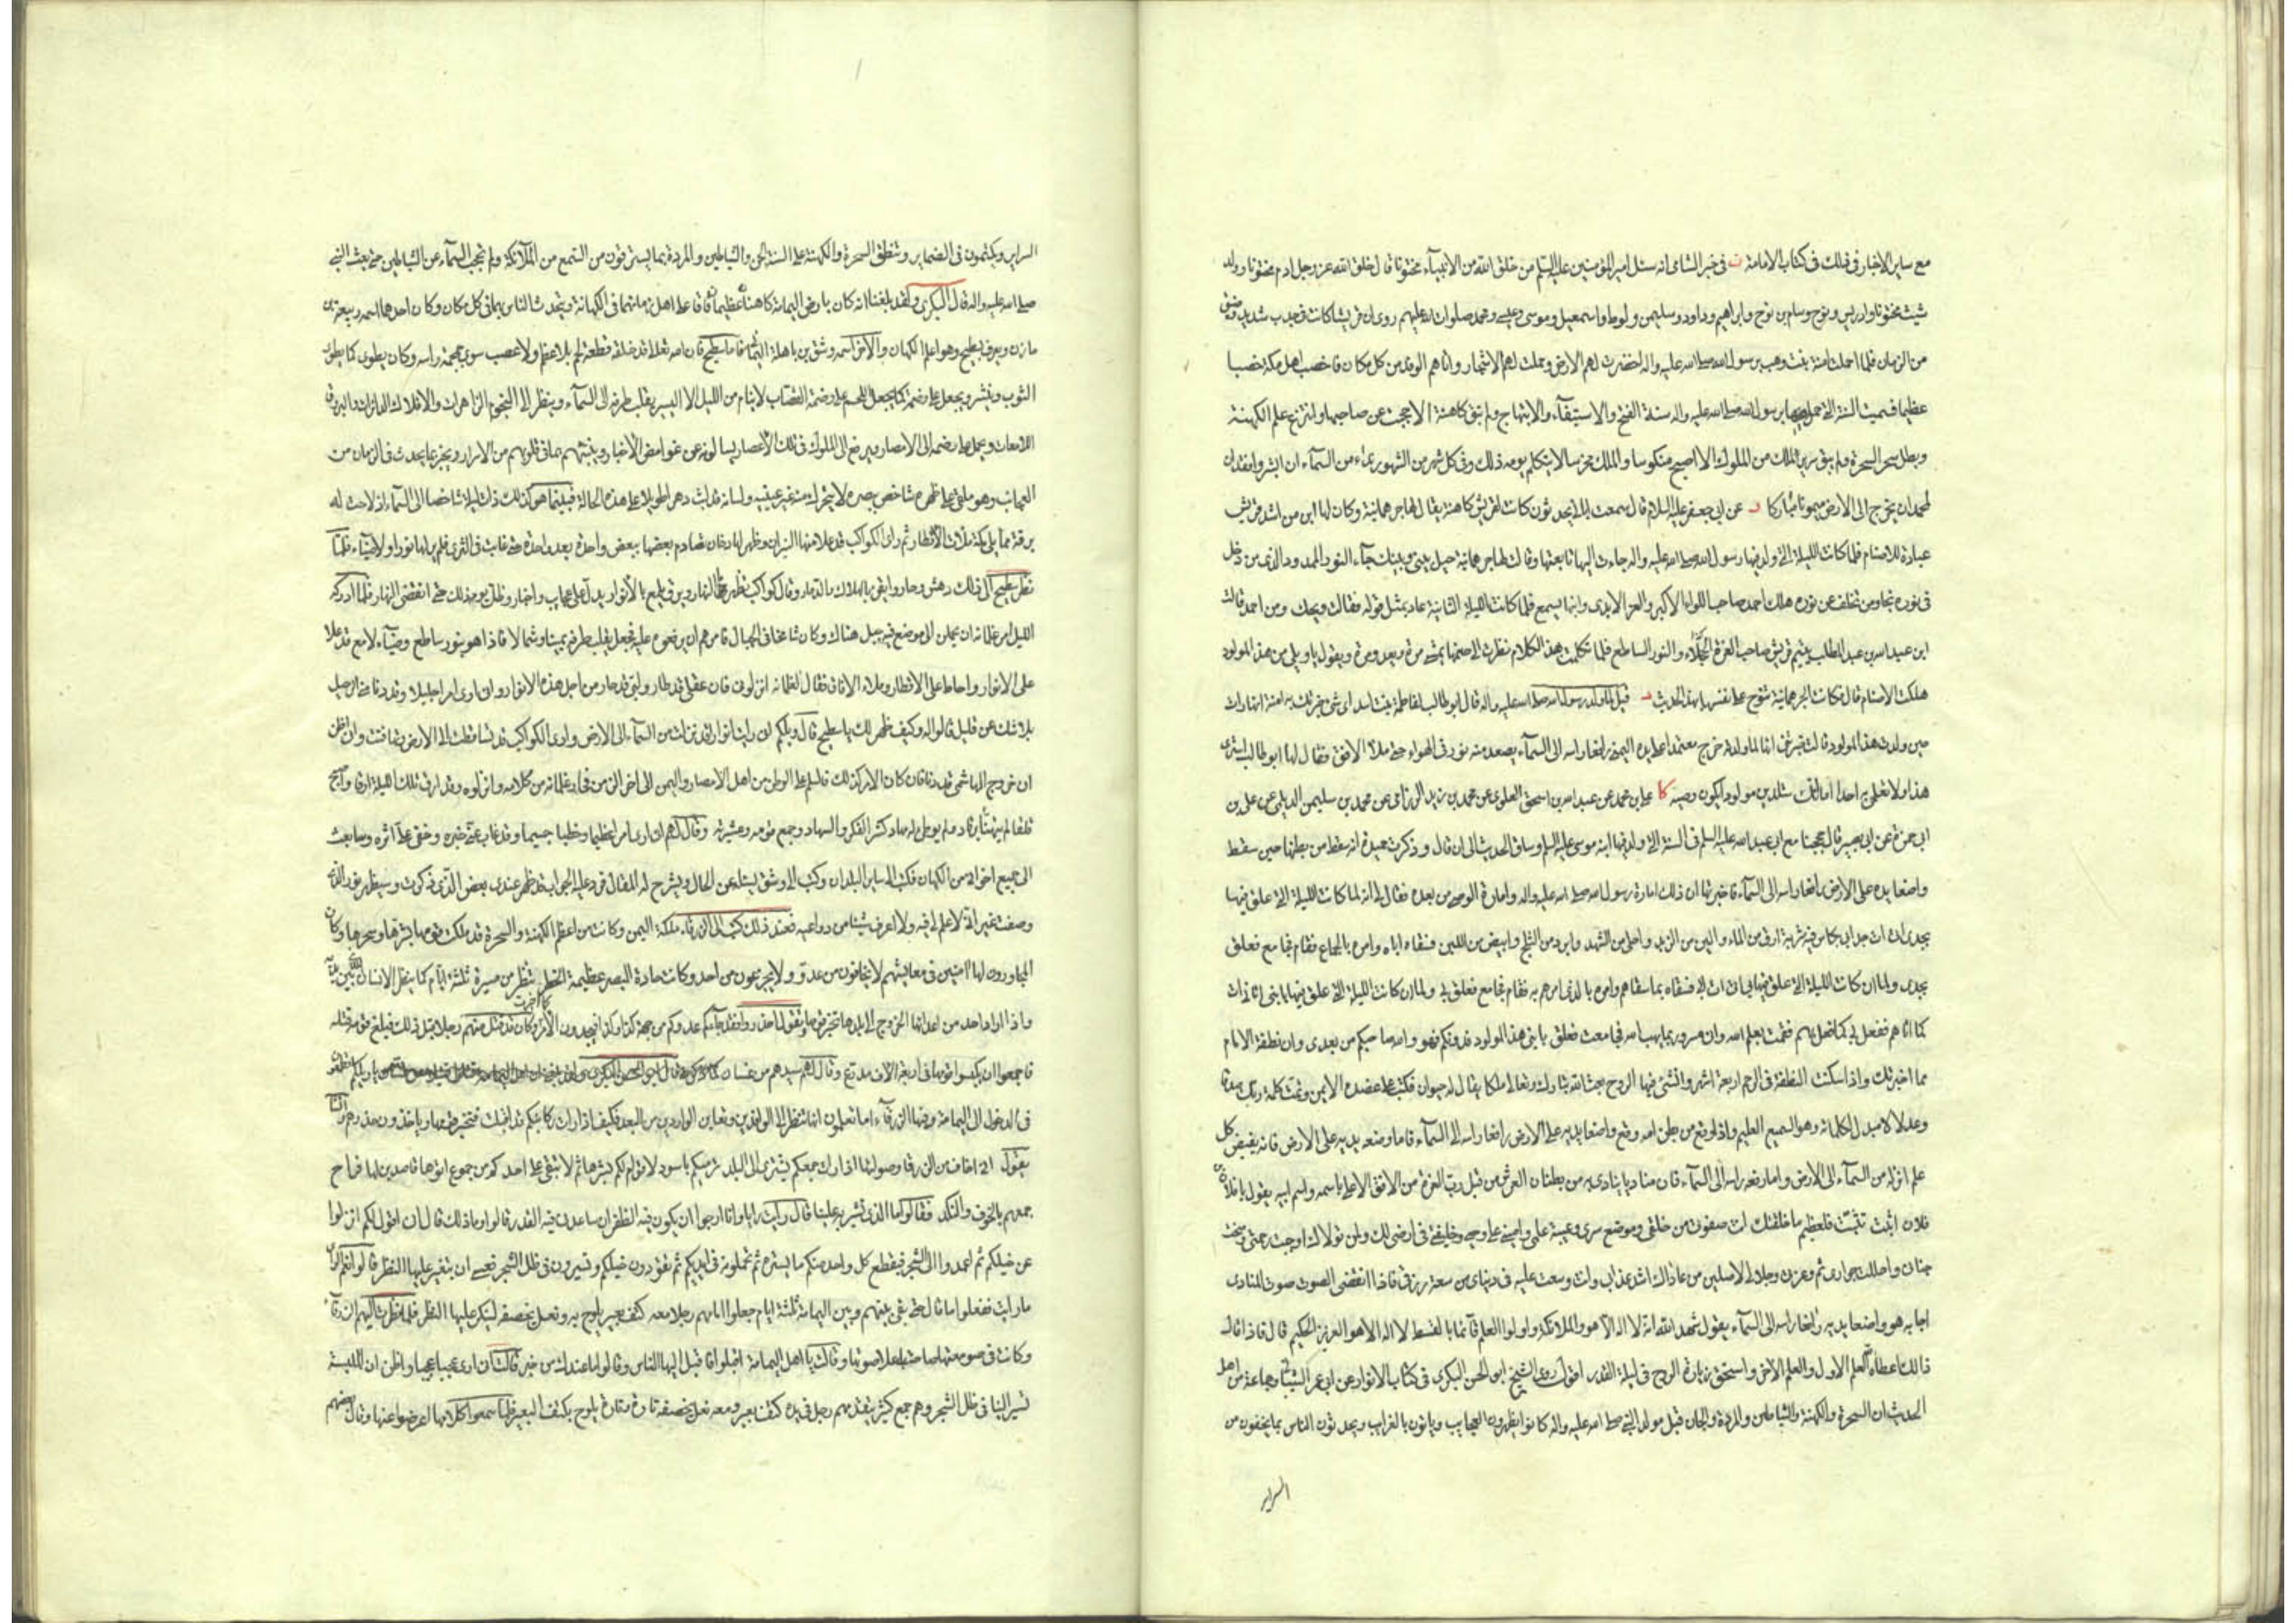 مع ساير الاخبار فى ذلك فى كتاب الامامة ن فى خبر الشامى انه سئل امير المؤمنين عليه السلم من خلق الله من الانبياء مختونا قال خلق الله عز وجل ادم مختونا وولد
شيث مختونا وادريس ونوح وسام بن نوح وابراهيم وداود وسليمن ولوط واسمعيل وموسى وعيسى ومحمد صلوات الله عليهم روى ان قريشا كانت فى جدب شديد وضيق
من الزمان فلما حملت امنة بنت وهب برسول الله صلى الله عليه واله اخضرت لهم الارض وحملت لهم الاشجار واتاهم الوفد من كل مكان فاخصب اهل مكة خصبا
عظيما فسميت السنة التى حمل فيها برسول الله صلى الله عليه واله سنة الفتح والاستيفاء والابتهاج ولم تبق كاهنة الا حجبت عن صاحبها وانتزع علم الكهنة
وبطل سحر السحرة ولم يبق سرير لملك من الملوك الا اصبح منكوسا والملك مخرسا لا يتكلم يومه ذلك وفى كل شهر من الشهور نداء من السماء ان ابشروا فقد ان
لمحمد ان يخرج الى الارض ميمونا مباركا عن ابى جعفر عليه السلام قال سمعته يحدثون كانت لقريش كاهنة يقال لها جرهمانية وكان لها ابن من اشد قريش
عبادة للاصنام فلما كانت الليلة التى ولد فيها رسول الله صلى الله عليه واله جاءت اليها تابعتها وقالت لها جرهمانية حيل بينى وبينك جاء النور الممدود الذى من دخل
فى نوره نجا ومن تخلف عن نوره هلك احمد صاحب اللواء الاكبر والعز الابدى وابنها يسمع فلما كانت الليلة الثانية عاد بمثل قوله فقالت ويحك ومن احمد قالت
ابن عبد الله بن عبد المطلب يتيم قريش صاحب الغرة الحجلاء والنور الساطع فلما تكلمت بهذا الكلام نظرت الى صنمها يمشى مرة ويعدو مرة ويقول ياويلى من هذا المولود
هلكت الاصنام قال فكانت الجرهمانية تنوح على نفسها بهذا الحديث قيل لما ولد رسول الله صلى الله عليه واله قال ابو طالب لفاطمة بنت اسد اى شئ خبرتك به امنة انها رات
حين ولدت هذا المولود قالت خبرتنى انها لما ولدته خرج معتمدا على يده اليمنى رافعا راسه الى السماء يصعد منه نور فى الهواء حتى ملا الافق فقال لها ابو طالب استرى
هذا ولا تعلمى به احدا اما انك ستلدين مولودا يكون وصيه كا على بن محمد عن عبد الله بن اسحق العلوى عن محمد بن زيد الرزامى عن محمد بن سليمن الديلمى عن على بن
ابى حمزة عن ابى بصير قال حججنا مع ابى عبد الله عليه السلم فى السنة التى ولد فيها ابنه موسى عليه السلم وساق الحديث الى ان قال وذكرت حميدة انه سقط من بطنها حين سقط
واضعا يده على الارض رافعا راسه الى السماء فاخبرتها ان ذلك امارة رسول الله صلى الله عليه واله وامارة الوصى من بعده فقال لى انه لما كانت الليلة التى علق فيها
بجدى اتى ات جد ابى بكاس فيه شربة ارق من الماء والين من الزبد واحلى من الشهد وابرد من الثلج وابيض من اللبن فسقاه اياه وامره بالجماع فقام فجامع فعلق
بجدى ولما ان كانت الليلة التى علق فيها بابى اتى ات جدى فسقاه كما سقاهم وامره بالذى امرهم به فقام فجامع فعلق بى ولما ان كانت الليلة التى علق فيها بابنى اتانى ات
كما اتاهم ففعل بى كما فعل بهم فقمت بعلم الله وانى مسرور بما يهب الله لى فجامعت فعلق بابنى هذا المولود فدونكم فهو والله صاحبكم من بعدى وان نطفة الامام
مما اخبرتك واذا سكنت النطفة فى الرحم اربعة اشهر وانشئ فيها الروح بعث الله تبارك وتعالى ملكا يقال له حيوان فكتب على عضده الايمن وتمت كلمة ربك صدقا
وعدلا لا مبدل لكلماته وهو السميع العليم واذا وقع من بطن امه وقع واضعا يديه على الارض رافعا راسه الى السماء فاما وضعه يديه على الارض فانه يقبض كل
علم انزله من السماء الى الارض واما رفعه راسه الى السماء فان مناديا ينادى به من بطنان العرش من قبل رب العزة من الافق الاعلى باسمه واسم ابيه يقول يا فلان بن
فلان اثبت تثبت فلعظيم ما خلقتك انت صفوتى من خلقى وموضع سرى وعيبة علمى وامينى على وحيى وخليفتى فى ارضى لك ولمن تولاك اوجبت رحمتى ومنحت
جنانى واحللت جوارى ثم وعزتى وجلالى لاصلين من عاداك اشد عذابى وان وسعت عليه فى دنياى من سعة رزقى فاذا انقضى الصوت صوت المنادى
اجابه هو واضعا يديه رافعا راسه الى السماء يقول شهد الله انه لا اله الا هو والملائكة واولوا العلم قائما بالقسط لا اله الا هو العزيز الحكيم قال فاذا قال
ذلك اعطاه الله العلم الاول والعلم الاخر واستحق زيارة الروح فى ليلة القدر اقول روى الشيخ ابو الحسن البكرى فى كتاب الانوار عن ابى عمر الشيبانى وجماعة من اهل
الحديث ان السحرة والكهنة والشياطين والمردة والجان قبل مولد النبى صلى الله عليه واله كانوا يظهرون العجايب وياتون بالغرايب ويحدثون الناس بما يخفون من
السراير
السراير ويكتمون فى الضماير وتنطق السحرة والكهنة على السنة الجن والشياطين والمردة بما يسترقون من السمع من الملائكة ولم تحجب السماء عن الشياطين حتى بعث النبى
صلى الله عليه واله قال البكرى ولقد بلغنا انه كان بارض اليمامة كاهنان عظيمان فاقا على اهل زمانهما فى الكهانة ويتحدث الناس بهما فى كل مكان وكان احدهما اسمه ربيعة بن
مازن ويعرف بسطيح وهو اعلم الكهان والاخر اسمه وشق بن باهلة اليمانى فاما سطيح فان الله تعالى قد خلقه قطعة لحم بلا عظم ولا عصب سوى جمجمة راسه وكان يطوى كما يطوى
الثوب وينشر ويجعل على وضمة كما يجعل اللحم على وضمة القصاب لا ينام من الليل الا اليسير يقلب طرفه الى السماء وينظر الى النجوم الزاهرات والافلاك الدائرات والبروق
اللامعات ويحمل على وضمه الى الامصار ويرفع الى الملوك فى تلك الاعصار يسالونه عن غوامض الاخبار وينبئهم بما فى قلوبهم من الاسرار ويخبر بما يحدث فى الزمان من
العجائب وهو ملقى على ظهره شاخص بصره لا يتحرك منه غير عينيه ولسانه قد لبث دهرا طويلا على هذه الحالة فبينما هو كذلك ذات ليلة شاخصا الى السماء اذ لاحت له
برقة مما يلى مكة ملات الاقطار ثم راى الكواكب قد علا منها النيران وظهر لها دخان وتصادم بعضها ببعض واحدة بعد واحدة حتى غابت فى الثرى فلم ير لها نورا ولا ضياء فلما
نظر سطيح الى ذلك دهش وحار وايقن بالهلاك والدمار وقال كواكب تظهر بالنهار وبرق يلمع بالانوار يدل على عجايب واخبار وظل يومه ذلك حتى انقضى النهار فلما ادركه
الليل امر غلمانه ان يحملوه الى موضع فيه جبل هناك وكان شامخا فى الجبال فامرهم ان يرفعوه عليه فجعل يقلب طرفه يمينا وشمالا فاذا هو بنور ساطع وضياء لامع قد علا
على الانوار واحاط على الاقطار وملا الافاق فقال لغلمانه انزلونى فان عقلى قد طار ولبى قد حار من اجل هذه الانوار وانى ارى امرا جليلا وقد دنا منى الرحيل
بلا شك عن قليل قالوا له وكيف ظهر لك يا سطيح قال ويلكم انى رايت انوارا قد نزلت من السماء الى الارض وارى الكواكب قد تساقطت الى الارض وتهافتت وانى اظن
ان خروج الهاشمى قد دنا فان كان الامر كذلك فالسلم على الوطن من اهل الامصار واليمن الى اخر الزمن فحار غلمانه من كلامه وانزلوه وقد ارق تلك الليلة ارقا واصبح
قلقا لم يتهنا برقاد ولم يوطا له مهاد كثير الفكر والسهاد وجمع قومه وعشيرته وقال لهم انى ارى امرا عظيما وخطبا جسيما وقد غاب عنى خبره وخفى على اثره وسابعث
الى جميع اخوانى من الكهان فكتب الى ساير البلدان وكتب الى وشق يسئله عن الحال ويشرح له المقال فرد عليه الجواب قد ظهر عندى بعض الذى ذكرت وسيظهر نور الذى
وصفت غير انى لا علم لى فيه ولا اعرف شيئا من دواعيه فعند ذلك كتب الى الزرقاء ملكة اليمن وكانت من اعظم الكهنة والسحرة قد ملكت قومها بشرها وسحرها وكان
المجاورون لها امنين فى معايشهم لا يخافون من عدو ولا يجزعون من احد وكانت حادة البصر عظيمة الخطر تنظر من مسيرة ثلثة ايام كما ينظر الانسان الذى بين يديه
واذا اراد احد من اعدائها الخروج الى بلدها تخبر قومها وتقول لهم احذروا فقد جاءكم عدوكم من جهة كذا وكذا فيجدون الامر كما اخبرت
فاجمعوا ان يكبسوا قومها فى اربعة الاف مدرع وقال لهم سيدهم من غسان
فى الدخول الى اليمامة وفيها الزرقاء اما تعلمون انها تنظر الى الوافدين وتعاين الواردين من البعد فكيف اذا رات ركائبكم قد اقبلت فتخبر قومها وياخذون حذرهم
جمعهم بالخوف والنكد فقالوا ما الذى تشير به علينا قال رايت رايا وانا ارجوا ان يكون فيه الظفر ان ساعدنى فيه القدر قالوا وما ذلك قال انى اقول لكم انزلوا
عن خيلكم ثم اعمدوا الى الشجر فيقطع كل واحد منكم ما يستره ثم تحملونه فى ايديكم ثم تقودون خيلكم وتسيرون فى ظل الشجر فعسى ان يتغير عليها النظر قالوا نعم الراى
ما رايت ففعلوا ما قال حتى بقى بينهم وبين اليمامة ثلثة ايام جعلوا امامهم رجلا معه كتف بعير يلوح به ونعل يخصفه لينكر عليها النظر فلما نظرت اليهم الزرقاء
وكانت فى صومعتها صاحت باعلى صوتها وقالت يا اهل اليمامة اقبلوا فاقبل اليها الناس وقالوا ما عندك من خبر قالت انى ارى عجبا عجيبا واظن ان المليسة
تسير الينا فى ظل الشجر وهم جمع كثير يقدمهم رجل فى يده كتف بعير ومعه نعل يخصفه تارة وتارة يلوح بكتف البعير فلما سمعوا كلامها اعرضوا عنها وقال بعضهم